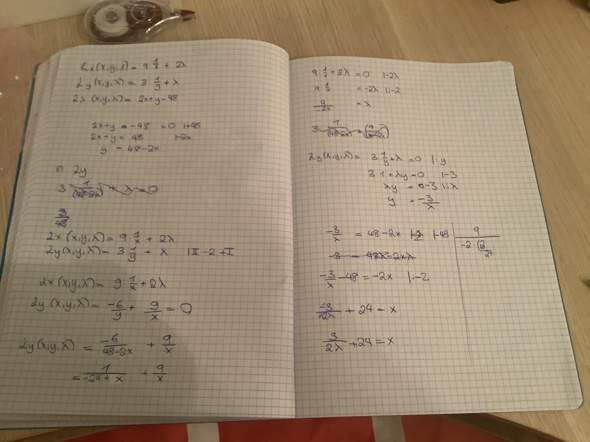 Lx(x,y,λ) = 9·1/x + 2λ
Ly(x,y,λ) = 3·1/y + λ
Lλ(x,y,λ) = 2x+y-48
2x+y = -48 = 0 |+48
2x+y = 48 |-2x
y = 48-2x
in Ly
3· 1/(48-2x) + λ = 0
Lx(x,y,λ) = 9·1/x + 2λ
Ly(x,y,λ) = 3·1/y + λ |II·-2+I
Lx(x,y,λ) = 9·1/x + 2λ
Ly(x,y,λ) = -6/y + 9/x = 0
Ly(x,y,λ) = -6/(48-2x) + 9/x
= 1/(-24+x) + 9/x
9·1/x + 2λ = 0 |-2λ
9·1/x = -2λ |:-2
9/-2x = λ
Ly(x,y,λ) = 3·1/y + λ = 0 |·y
3·1+λy = 0 |-3
λy = -3 |:λ
y = -3/λ
-3/λ = 48-2x |-48
-3 = 48λ-2xλ
-3/λ -48 = -2x |:-2
-3/-2λ + 24 = x
3/2λ + 24 = x